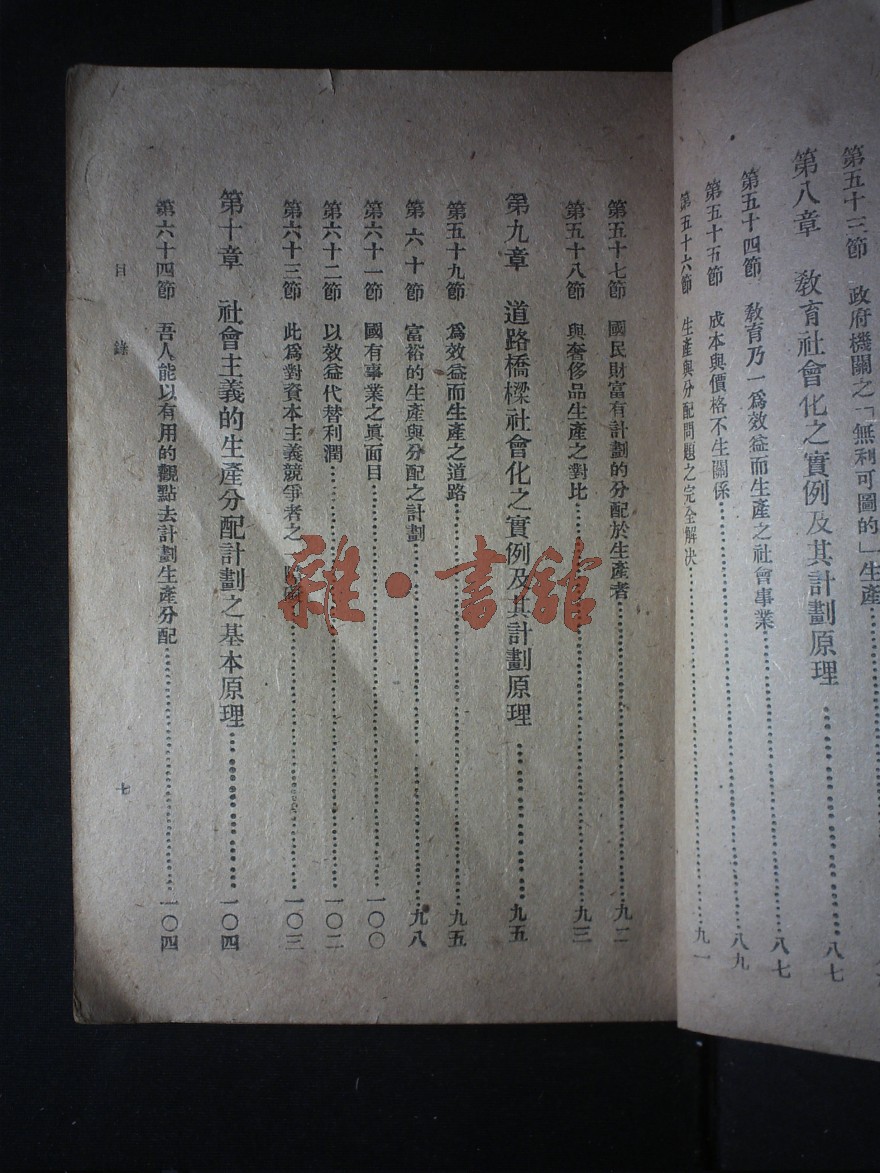 第五十三節　政府機關之「無利可圖的」生產
第八章　教育社會化之實例及其計劃原理………八七
第五十四節　教育乃一爲效益而生產之社會事業………八七
第五十五節　成本與價格不生關係………八九
第五十六節　生產與分配問題之完全解決………九一
第五十七節　國民財富有計劃的分配於生產者………九二
第五十八節　與奢侈品生產之對比………九三
第九章　道路橋樑社會化之實例及其計劃原理………九五
第五十九節　爲效益而生產之道路………九五
第六十節　富裕的生產與分配之計劃………九八
第六十一節　國有事業之眞面目………一〇〇
第六十二節　以效益代替利潤………一〇二
第六十三節　此爲對資本主義競爭者之一………一〇三
第十章　社會主義的生產分配計劃之基本原理………一〇四
第六十四節　吾人能以有用的觀點去計劃生產分配………一〇四
目錄
七
雜·書館